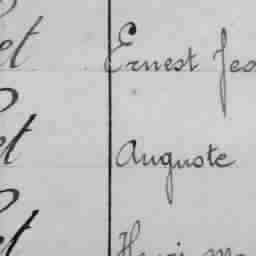 et Ernest Jea
et Auguste
et Henri Ma